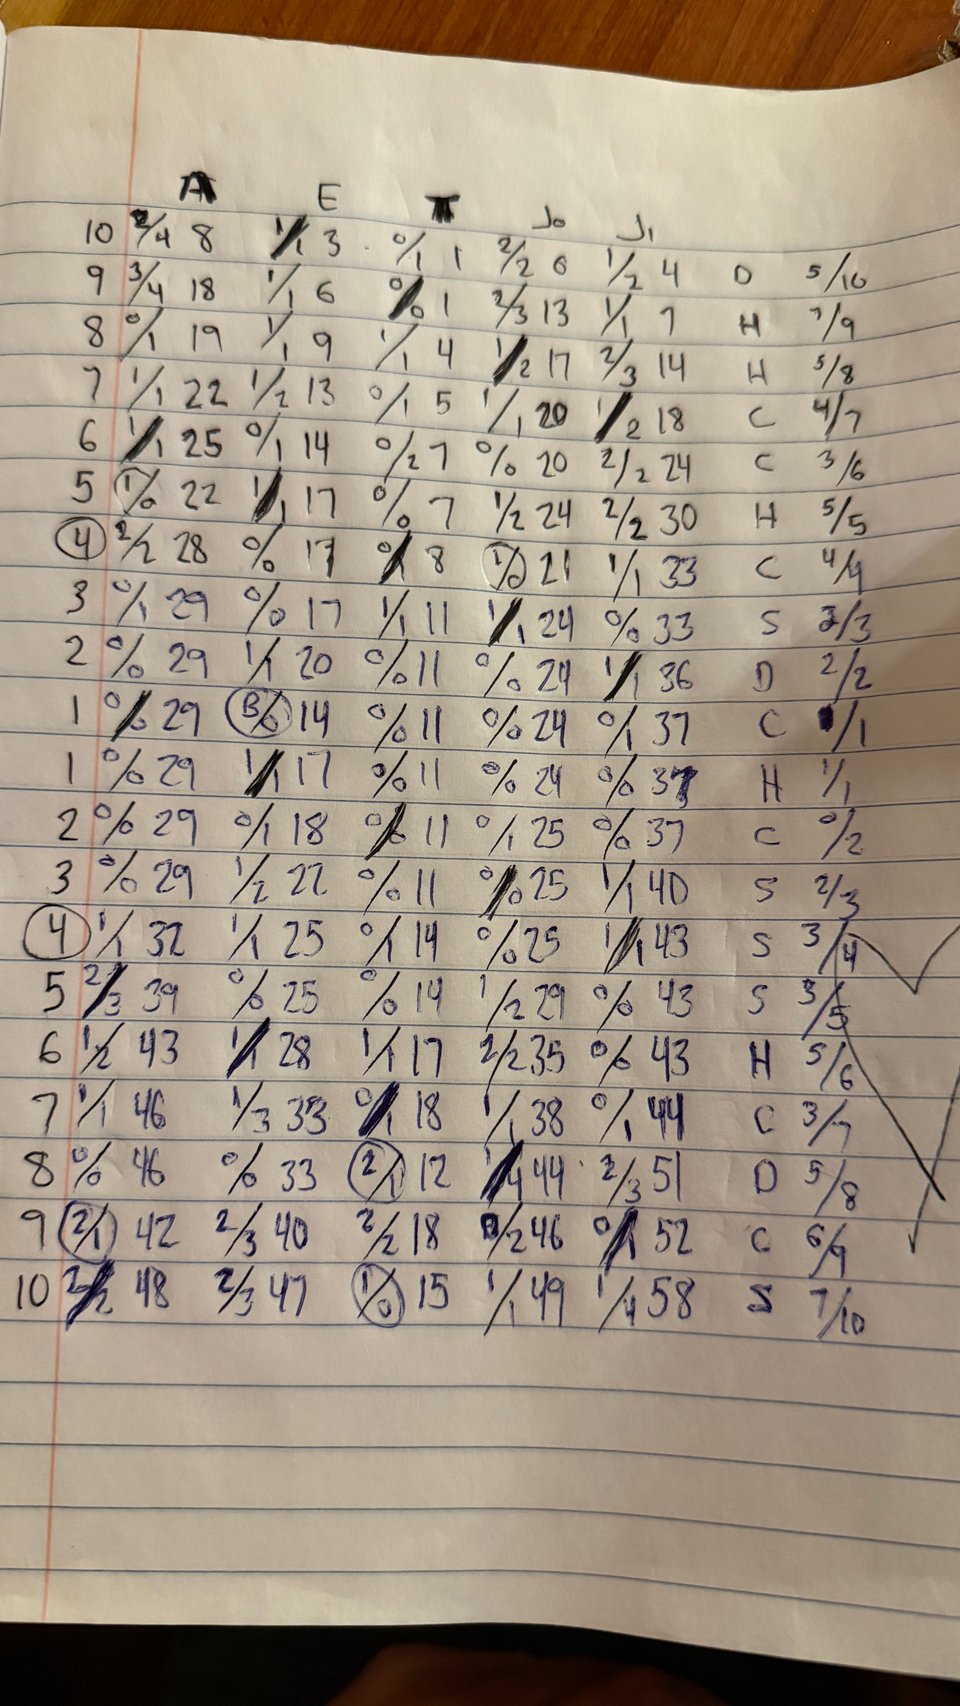 A E π J₀ J₁
10 2/4 8 1/1 3 0/1 1 2/2 6 1/2 4 D 5/10
9 3/4 18 1/1 6 0/0 1 2/3 13 1/1 7 H 7/9
8 0/1 19 1/1 9 1/1 4 1/2 17 2/3 14 H 5/8
7 1/1 22 1/2 13 0/1 5 1/1 20 1/2 18 C 4/7
6 1/1 25 0/1 14 0/2 7 0/0 20 2/2 24 C 3/6
5 1/0 22 1/1 17 0/0 7 1/2 24 2/2 30 H 5/5
4 2/2 28 0/0 17 0/1 8 1/0 21 1/1 33 C 4/4
3 0/1 29 0/0 17 1/1 11 1/1 24 0/0 33 S 2/3
2 0/0 29 1/1 20 0/0 11 0/0 24 1/1 36 D 2/2
1 0/0 29 3/0 14 0/0 11 0/0 24 0/1 37 C /1
1 0/0 29 1/1 17 0/0 11 0/0 24 0/0 37 H 1/1
2 0/0 29 0/1 18 0/0 11 0/1 25 0/0 37 C 0/2
3 0/0 29 1/2 22 0/0 11 0/0 25 1/1 40 S 2/3
4 1/1 32 1/1 25 0/1 14 0/0 25 1/1 43 S 3/4
5 2/3 39 0/0 25 0/0 14 1/2 29 0/0 43 S 3/5
6 1/2 43 1/1 28 1/1 17 2/2 35 0/0 43 H 5/6
7 1/1 46 1/3 33 0/1 18 1/1 38 0/1 44 C 3/7
8 0/0 46 0/0 33 2/1 12 1/4 44 2/3 51 D 5/8
9 2/1 42 2/3 40 2/2 18 0/2 46 0/1 52 C 6/9
10 2/2 48 2/3 47 1/0 15 1/1 49 1/4 58 S 7/10